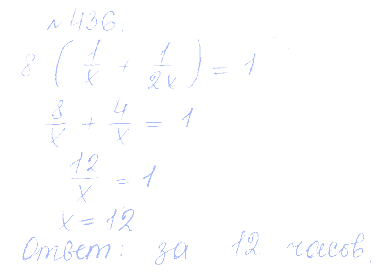 №436.
8 (1/x + 1/2x) = 1
8/x + 4/x = 1
12/x = 1
x = 12
Ответ: за 12 часов.